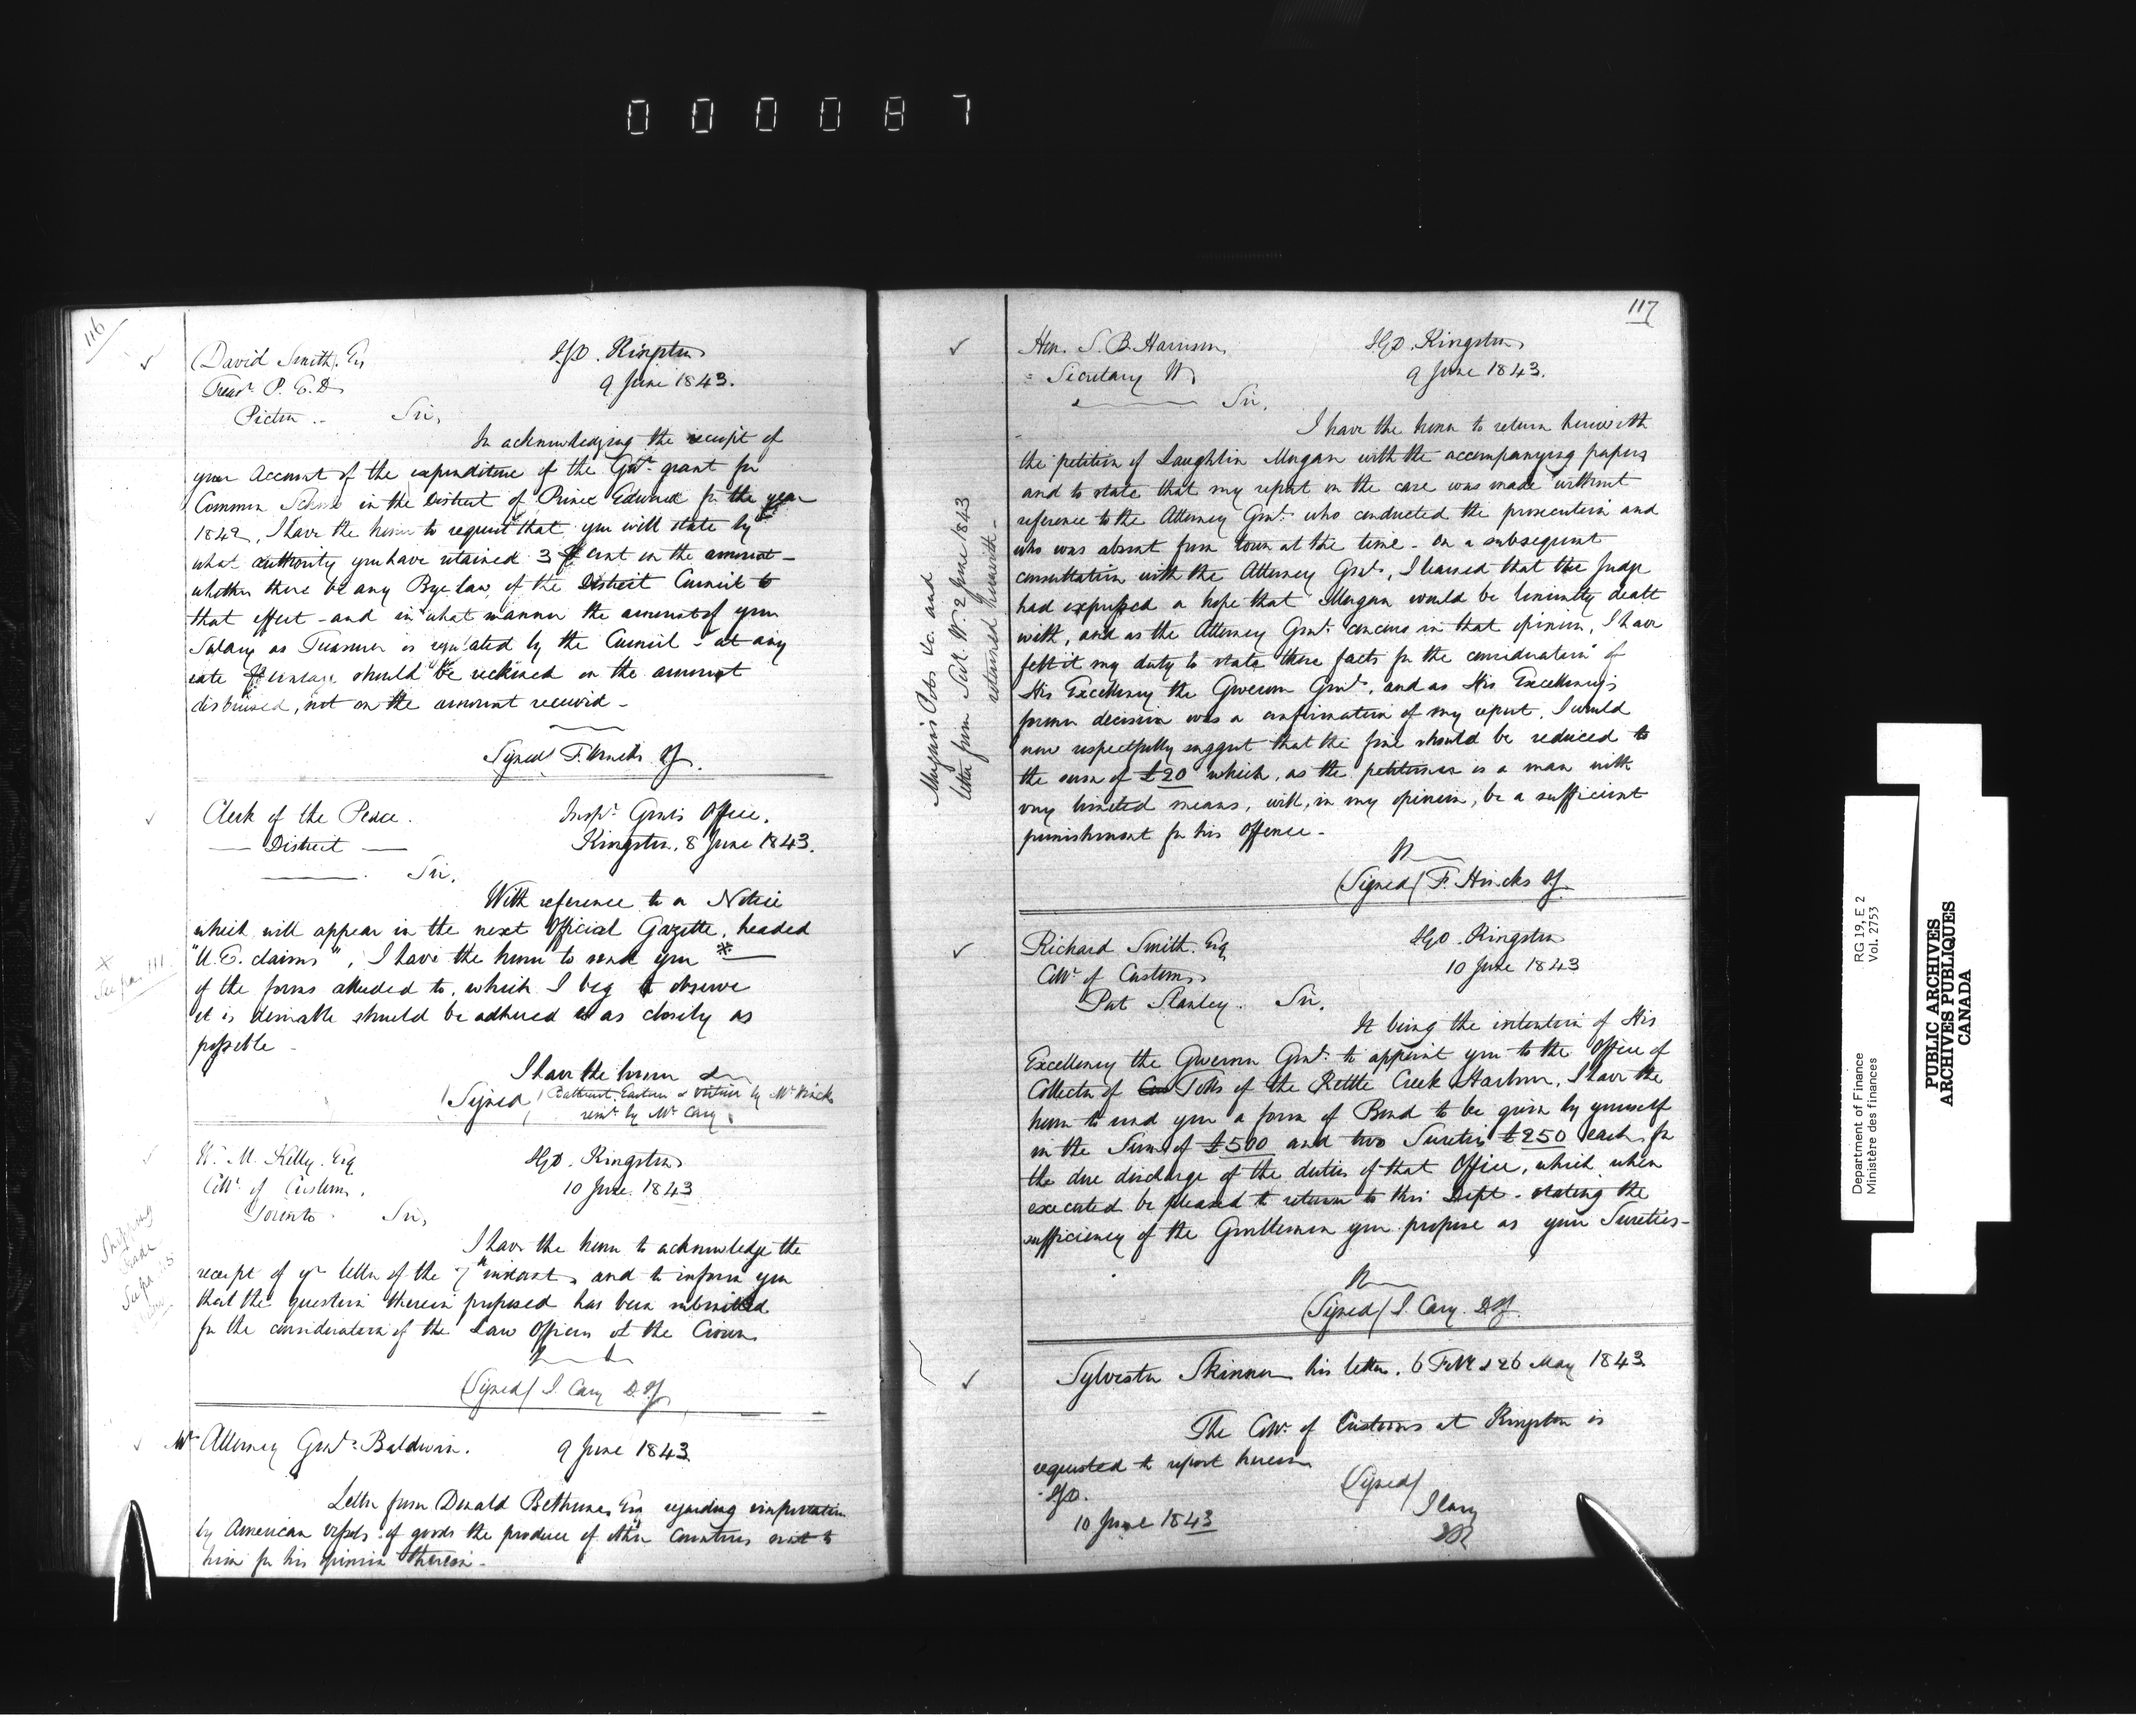 000087
116
David Smith, Esq
Treasr P. E. D
Picton ..
I.G.O. Kingston
9 June 1843.
Sir,
In acknowledging the receipt of
your Account of the expenditure of the Govt grant for
Common Schools in the District of Prince Edward for the year
1842, I have the honor to request that you will state by
what authority you have retained 3 P cent on the amount -
whether there be any Bye law, of the District Council to
that effect - and in what manner the amount of your
Salary as Treasurer is regulated by the Council - at any
rate P centage should be reckoned on the amount
disbursed, not on the amount received -
Signed F. Hincks IG.
Clerk of the Peace.
— District —
Inspr Genls Office,
Kingston, 8 June 1843.
Sir,
With reference to a Notice
which will appear in the next Official Gazette, headed
"U. E. claims", I have the honor to send you * —
of the forms alluded to, which I beg to observe
it is desirable should be adhered to as closely as
possible -
I have the honor &
(Signed) Bathurst, Eastern & Victoria by Mr Hincks
remr by Mr Cary
X
See pa. 111.
W. M. Kelly. Esq
Collr of Customs,
Toronto
I.G.O. Kingston
10 June. 1843
Sir,
I have the honor to acknowledge the
receipt of yr letter of the 7th instant, and to inform you
that the question therein proposed has been submitted
for the consideration of the Law Officers of the Crown
(Signed) J. Cary D.IG
Shipping
Trade
See pa
Mr Attorney Genl Baldwin.
9 June 1843
Letter from Donald Bethune, Esq regarding importation
by American vessels of goods the produce of other Countries sent to
him for his opinion thereon -
117
Hon. S. B. Harrison,
Secretary W.
I.G.O. Kingston
9 June 1843.
Sir,
I have the honor to return herewith
the petition of Laughlin Morgan with the accompanying papers
and to state that my report on the case was made without
reference to the Attorney Genl. who conducted the prosecution and
who was absent from town at the time - On a subsequent
consultation with the Attorney Genl, I learned that the Judge
had expressed a hope that Morgan would be leniently dealt
with, and as the Attorney Genl. concurs in that opinion, I have
felt it my duty to state these facts for the consideration of
His Excellency the Governor Genl, and as His Excellency's
former decision was a confirmation of my report, I would
now respectfully suggest that the fine should be reduced to
the sum of £20 which, as the petitioner is a man with
very limited means, will, in my opinion, be a sufficient
punishment for his offence -
(Signed) F. Hincks IG.
Morgan's &c. and
letter from Sec. W. 2 June 1843
returned herewith -
Richard Smith. Esq
Collr of Customs,
Port Stanley.
I.G.O. Kingston
10 June 1843
Sir,
It being the intention of His
Excellency the Governor Genl. to appoint you to the Office of
Collector of Tolls of the Kettle Creek Harbour, I have the
honor to send you a form of Bond to be given by yourself
in the Sum of £500 and two Sureties £250 each, for
the due discharge of the duties of that Office, which when
executed be pleased to return to this Dept - stating the
sufficiency of the Gentlemen you propose as your Sureties -
(Signed) J. Cary. D.IG.
Sylvester Skinner his letter. 6 Feb & 26 May 1843
The Collr of Customs at Kingston is
requested to report hereon
I.G.O.
10 June 1843
(Signed)
J Cary
Department of Finance
Ministère des finances
RG 19, E 2
Vol. 2753
PUBLIC ARCHIVES
ARCHIVES PUBLIQUES
CANADA